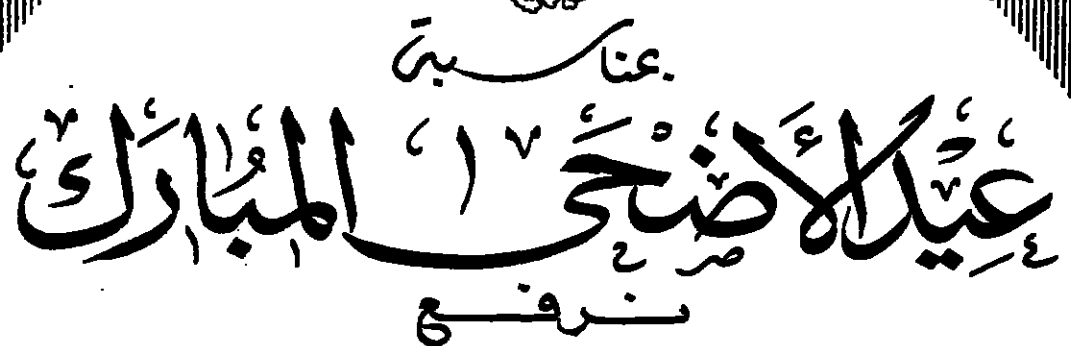 بمناسبة
عِيْدُ الأَضْحَى المُبَارَك
نرفع